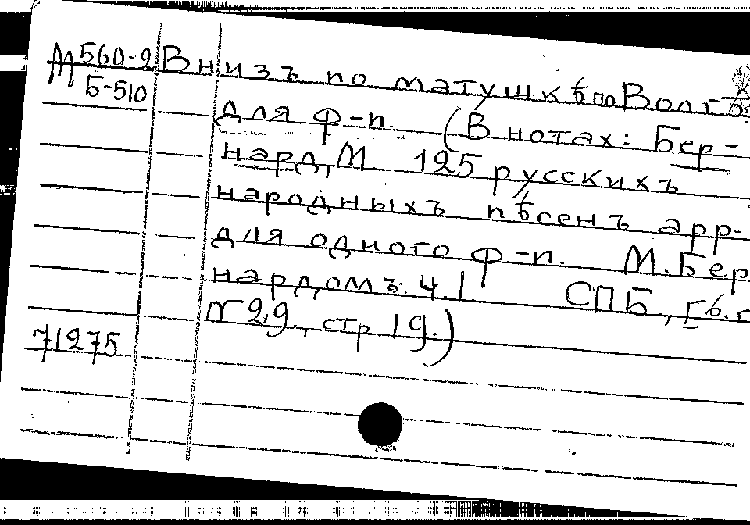 М 560-2 Внизъ по матушкѣ по Волгѣ
Б-510
для ф-п. (В нотах: Бер-
нард, М 125 русскихъ
народныхъ пѣсенъ арр-
для одного ф-п. М. Бер
нардомъ ч. 1 СПБ, [б.г
№ 29, стр 19.)
71275